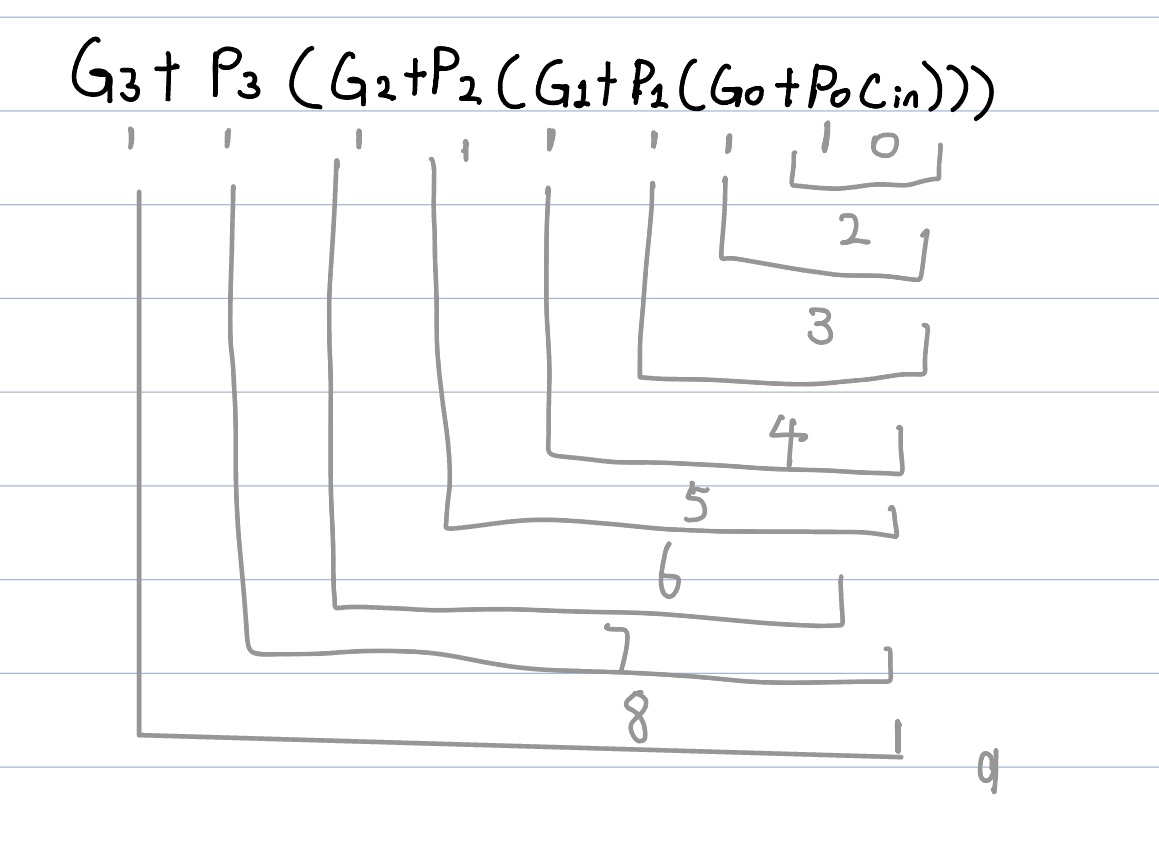 G3+ P3 (G2+P2(G1+P1(G0+P0Cin)))
1 1 1 1 1 1 1 1 0
2
3
4
5
6
7
8
9